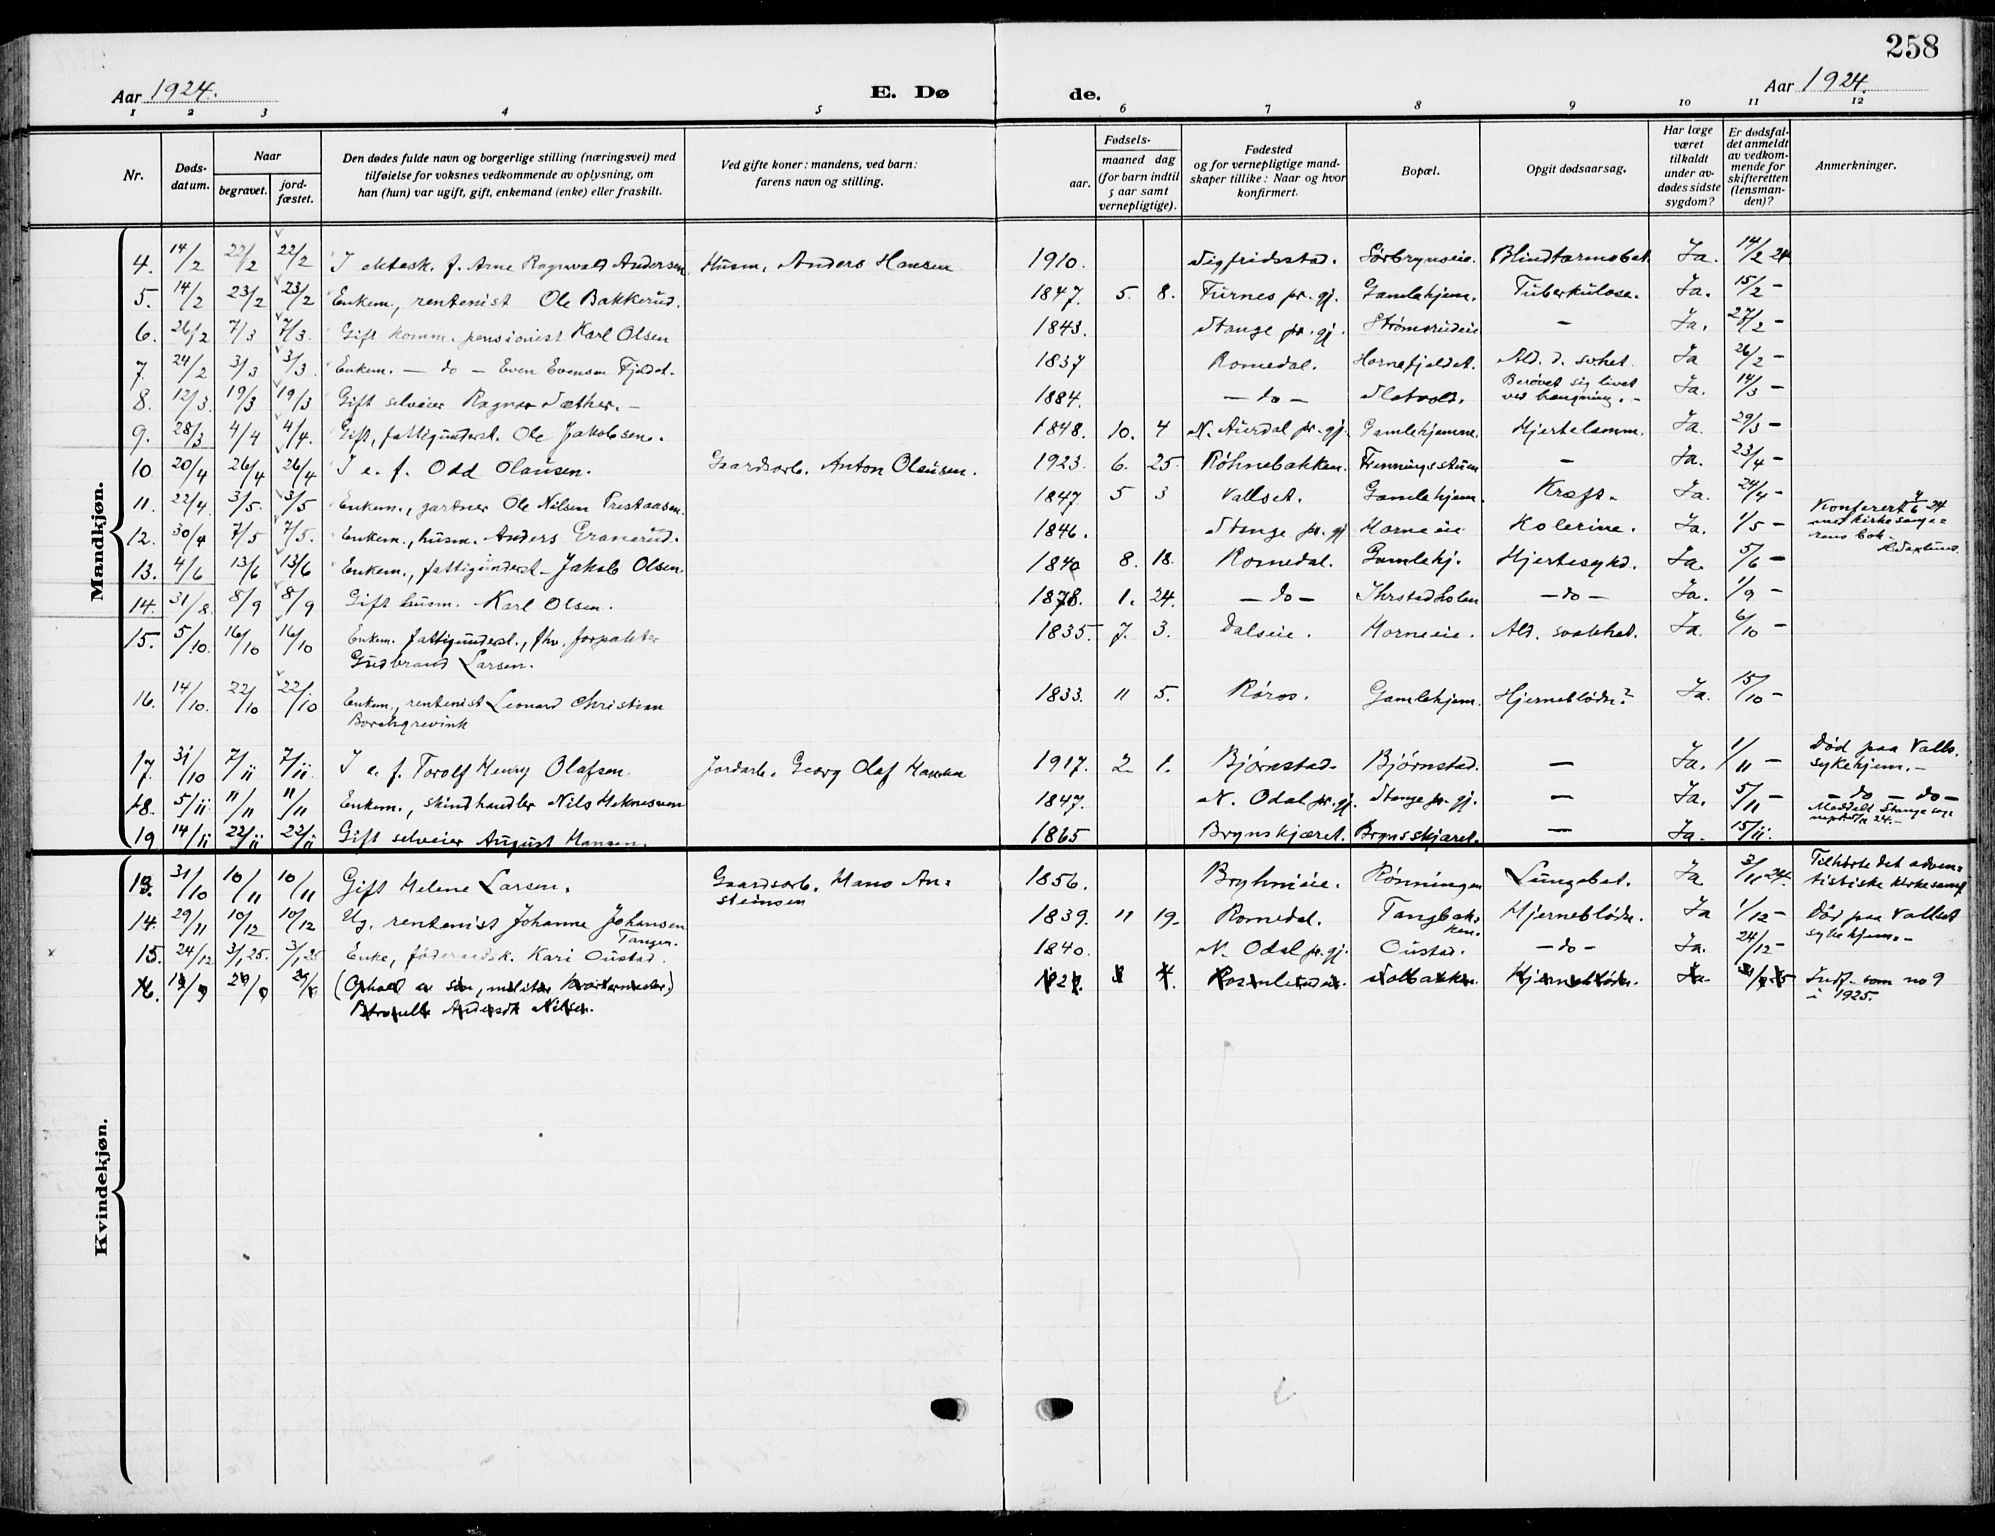 258
Aar 1924. E. Døde. Aar 1924.
1 2 3 4 5 6 7 8 9 10 11 12
Nr. Dødsdatum. Naar begravet. jordfæstet. Den dødes fulde navn og borgerlige stilling (næringsvei) med tilføielse for voksnes vedkommende av oplysning, om han (hun) var ugift, gift, enkemand (enke) eller fraskilt. Ved gifte koner: mandens, ved barn: farens navn og stilling. Fødsels- aar. maaned dag (for barn indtil 5 aar samt vernepligtige). Fødested og for vernepligtige mandskaper tillike: Naar og hvor konfirmert. Bopæl. Opgit dødsaarsag. Har læge været tilkaldt under avdødes sidste sygdom? Er dødsfaldet anmeldt av vedkommende for skifteretten (lensmanden)? Anmerkninger.
Mandkjøn.
4. 14/2 22/2 22/2 I ektesk. f. Arne Ragnvald Andersen Husm. Anders Hansen 1910. Sigfridsstad. Sørbrynseie. Blindtarmsbet. Ja. 14/2 24
5. 14/2 23/2 23/2 Enkem., rentenist Ole Bakkerud. 1847. 5. 8. Furnes pr. gj. Gamlehjem. Tuberkulose. Ja. 15/2 –
6. 26/2 7/3 7/3 Gift komm. pensionist Karl Olsen 1843. Stange pr. gj. Strømsrudeie – Ja. 27/2 –
7. 24/2 3/3 3/3 Enkem. – do – Even Evensen Fjeldet. 1837 Romedal. Hornefjeldet. Ald. d. svhet. Ja 26/2 –
8. 12/3. 19/3 19/3 Gift selveier Ragnar Sæther. – 1884. – do – Slotvolt. Berøvet sig livet ved hængning. – Ja. 14/3 –
9. 28/3 4/4 4/4. Gift, fattigunderst. Ole Jakobsen. 1848. 10. 4 N. Aurdal pr. gj. Gamlehjemme. Hjertelamm. Ja. 29/3 –
10 20/4 26/4 26/4 I e. f. Odd Olausen. Gaardsarb. Anton Olausen. 1923. 6. 25. Røhnebakken. Frenningsstuen – Ja. 23/4 –
11. 22/4. 3/5. 3/5 Enkem., gartner Ole Nilsen Prestaasen. 1847. 5 3 Vallset. Gamlehjem. Kræft. Ja. 24/4 –
12. 30/4 7/5 7/5. Enkem., husm. Anders Granerud. 1846. Stange pr. gj. Horneeie Kolerine. Ja. 1/5 – Konferert 4/6 24 med kirkesangerens bok.
13. 4/6 13/6 13/6 Enkem., fattigunderst. Jakob Olsen. 1840 8. 18. Romedal. Gamlehj. Hjertesykd. Ja. 5/6 –
14. 31/8. 8/9 8/9 Gift husm. Karl Olsen. 1878. 1. 24. – do – – do – Ja. 1/9 –
15. 5/10. 16/10 16/10 Enkem. fattigunderst., fhv. forpakter 1835 7. 3. Dalseie. Horneeie. Ald. svakhet. Ja. 6/10 –
Gudbrand Larsen.
16. 14/10. 22/10 22/10 Enkem., rentenist Leonard Christian 1833. 11 5. Røros. Gamlehjem. Hjerneblødn? Ja. 15/10 –
Borchgrevink
17. 31/10 7/11 7/11. I e. f. Torolf Henry Olafsen. Jordarb. Georg Olaf Hansen 1917. 2. 1. Bjørnstad. Bjørnstad. – Ja. 1/11 – Død paa Valls. sykehjem. –
18. 5/11 11/11 11/11 Enkem., skindhandler Nils Meknesven 1847. N. Odal pr. gj. Stange pr. gj. – Ja. 5/11 – – do – do – Meddelt Stange
19 14/11 22/11 22/11 Gift selveier August Hansen. 1865 Brynskjæret. Brynsskjæret. – Ja. 15/11.
Kvindekjøn.
13. 31/10 10/11 10/11 Gift Helene Larsen. Gaardsarb. Hans Ansteinsen 1856. Bryhnieie. Rønningen Lungebet. Ja 3/11 24. Tilhørte det adventistiske kirkesamf
14. 29/11 10/12 10/12 Ug. rentenist Johanne Johansen Tangen. 1839. 11 19. Romedal. Tangbakken. Hjerneblødn. Ja 1/12 – Død paa Vallset sykehjem. –
15. 24/12 3/1 25. 3/1 25 Enke, føderaadsk. Kari Oustad. 1840. N. Odal pr. gj. Oustad. – do – Ja. 24/12 –
16. (Ophold av søn, Nilsen. Hjerneblødn. Ja. Indf. som no 9 i 1925.